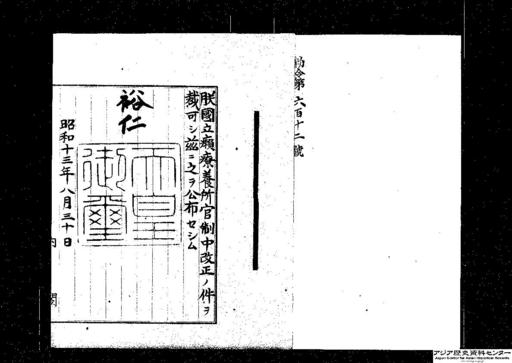 勅令第六百十二號
朕國立癩療養所官制中改正ノ件ヲ
裁可シ茲ニ之ヲ公布セシム
裕仁
天皇御璽
昭和十三年八月三十日
内閣
アジア歴史資料センター
Japan Center for Asian Historical Records